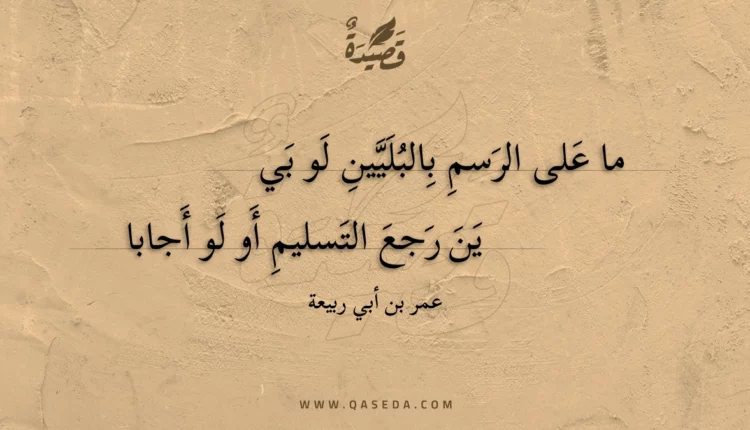 قَصِيْدَةٌ
ما عَلى الرَسمِ بِالبُلَيَّينِ لَو بَي
يَنَ رَجعَ التَسليمِ أَو لَو أَجابا
عمر بن أبي ربيعة
WWW.QASEDA.COM